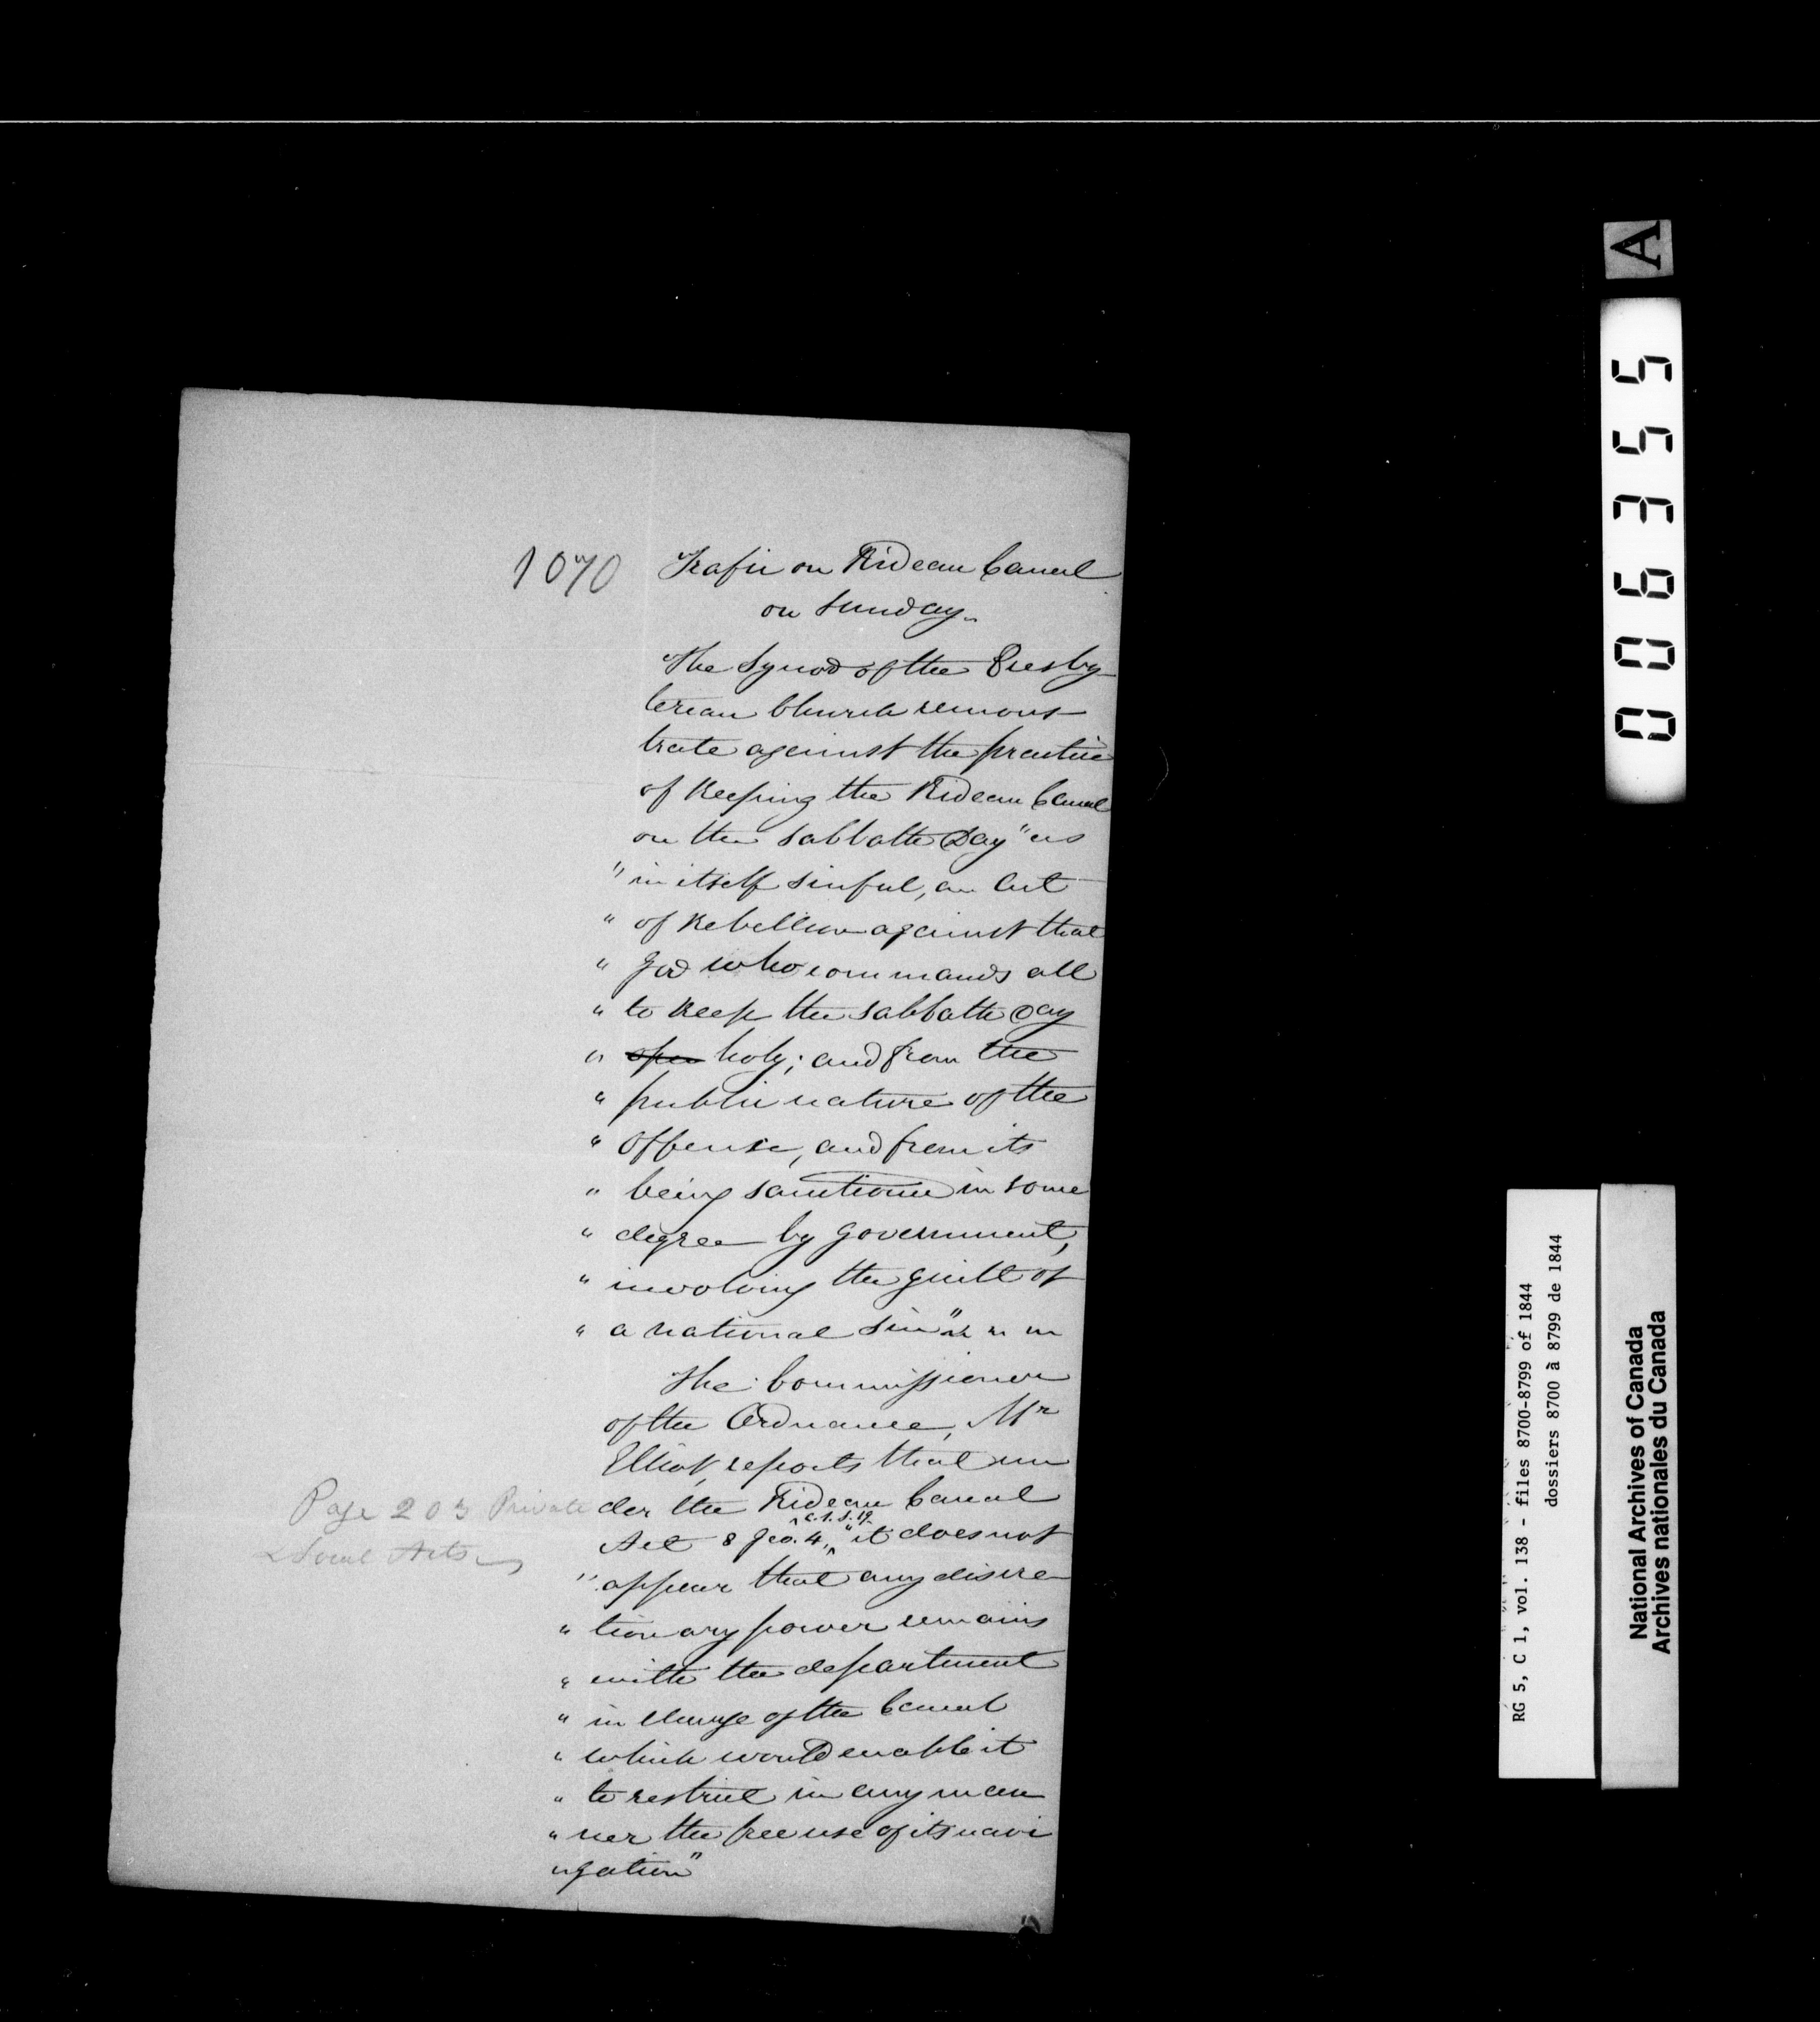 1070
Trafic on Rideau Canal
on Sunday.
The Synod of the Presby
terian Church remons
trate against the practice
of Keeping the Rideau Canal
on the Sabbath Day "as
" in itself sinful, an Act
" of Rebellion against that
" God who commands all
" to Keep the Sabbath Day
" open holy; and from the
" public nature of the
" offense, and from its
" being sanctioned in some
" degree by Government,
" involving the guilt of
" a national sin"
The Commissioner
of the Ordnance, Mr
Elliot, reports that un
der the Rideau Canal
Act 8 Geo. 4, c. 1. s. 19 "it does not
" appear that any discre
" tionary power remains
" with the department
" in charge of the Canal
" which would enable it
" to restrict in any man
" ner the free use of its navi
" gation"
Page 203 Private
& Local Acts
A
006355
RG 5, C 1, vol. 138 - files 8700-8799 of 1844
dossiers 8700 à 8799 de 1844
National Archives of Canada
Archives nationales du Canada